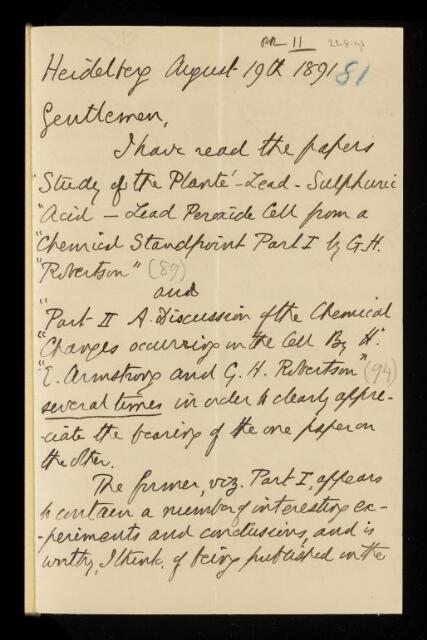 RR 11 22.8.91
Heidelberg August 19th 1891 81
Gentlemen,
I have read the papers
"Study of the Planté - Lead - Sulphuric
"Acid - Lead Peroxide Cell from a
"Chemical Standpoint Part I by G.H.
"Robertson" (89)
and
"Part II A Discussion of the Chemical
"Changes occurring in the Cell By H.
"E. Armstrong and G. H. Robertson" (94)
several times in order to clearly appre-
-ciate the bearing of the one paper on
the other.
The former, viz. Part I, appears
to contain a number of interesting ex-
-periments and conclusions, and is
worthy, I think, of being published in the